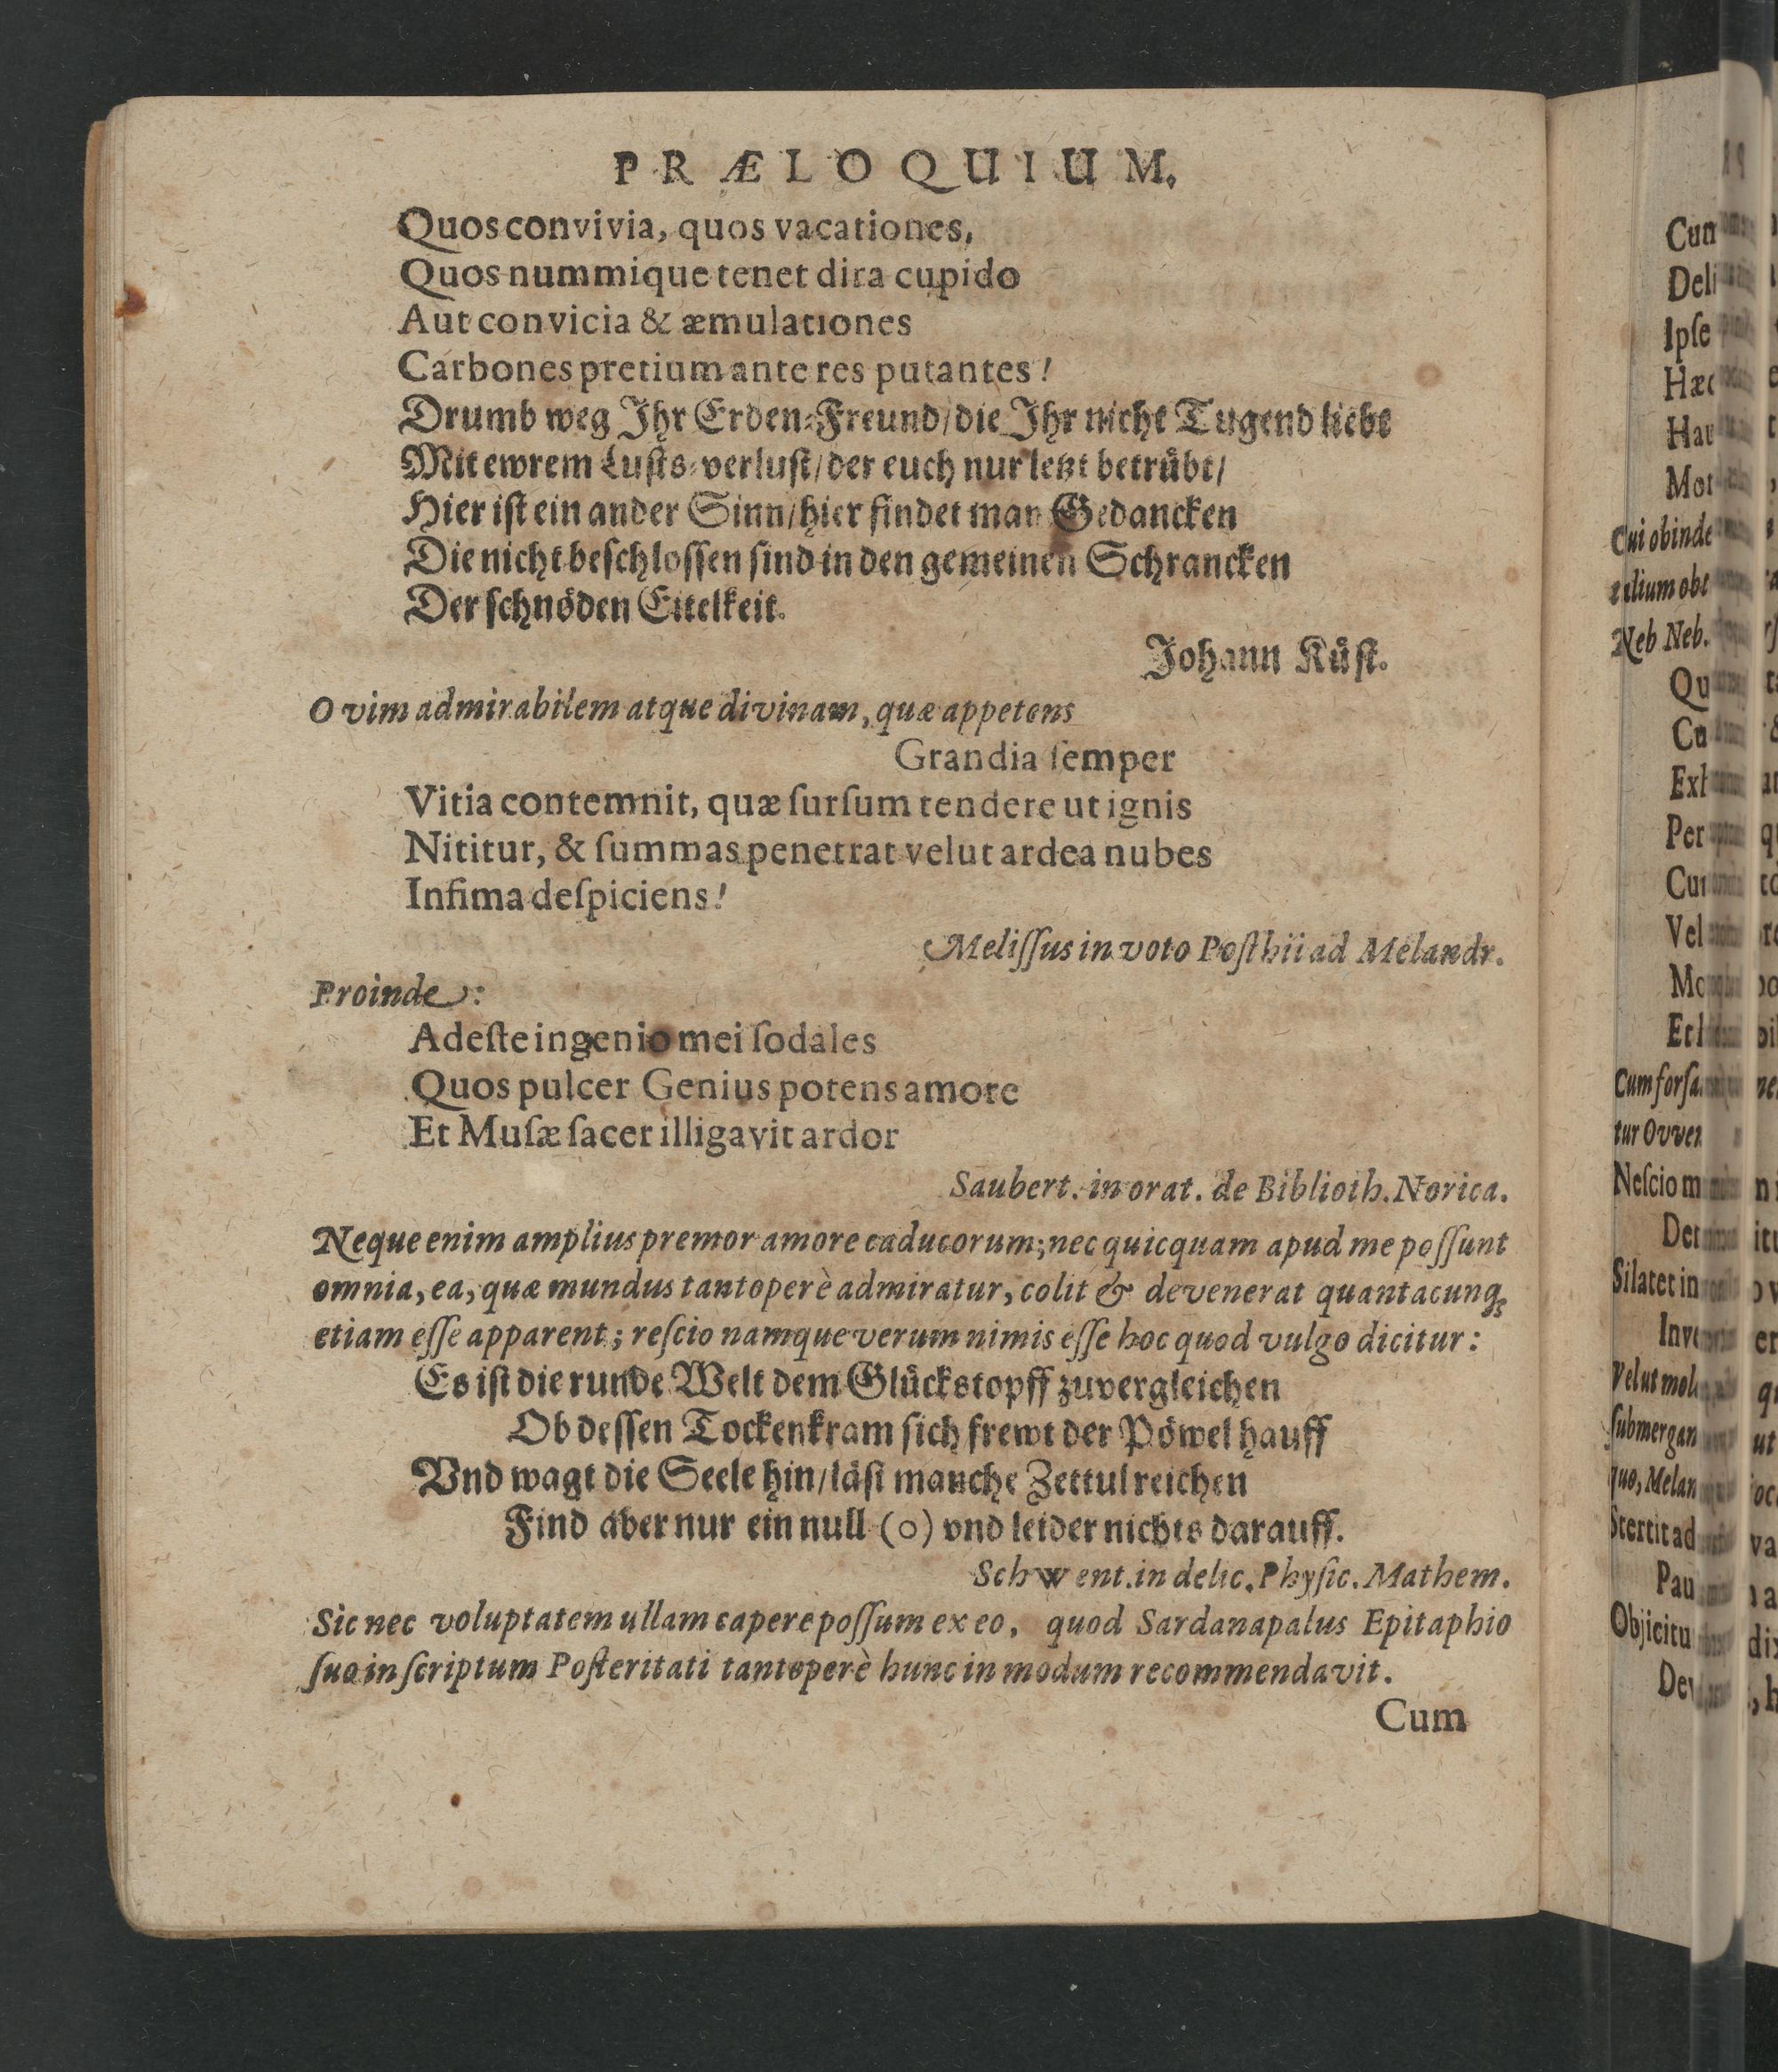 PRÆLOQUIUM.
Quos convivia, quos vacationes,
Quos nummique tenet dira cupido
Aut convicia & æmulationes
Carbones pretium ante res putantes!
Drumb weg Ihr Erden-Freund/die Ihr nicht Tugend liebt
Mit ewrem Lusts-verlust/der euch nur letzt betrübt/
Hier ist ein ander Sinn/hier findet man Gedancken
Die nicht beschlossen sind in den gemeinen Schrancken
Der schnöden Eitelkeit.
Johann Küst.
O vim admirabilem atque divinam, quæ appetens
Grandia ſemper
Vitia contemnit, quæ ſurſum tendere ut ignis
Nititur, & ſummas penetrat velut ardea nubes
Infima deſpiciens!
Meliſſus in voto Poſthii ad Melandr.
Proinde:
Adeſte ingenio mei ſodales
Quos pulcer Genius potens amore
Et Muſæ ſacer illigavit ardor
Saubert. in orat. de Biblioth. Norica.
Neque enim amplius premor amore caducorum; nec quicquam apud me poſſunt
omnia, ea, quæ mundus tantoperè admiratur, colit & devenerat quantacunq;
etiam eſſe apparent; reſcio namque verum nimis eſſe hoc quod vulgo dicitur:
Es ist die runde Welt dem Glückstopff zuvergleichen
Ob dessen Tockenkram sich frewt der Pöwel hauff
Vnd wagt die Seele hin/läst manche Zettul reichen
Find aber nur ein null (o) vnd leider nichts darauff.
Schwent. in delic. Phyſic. Mathem.
Sic nec voluptatem ullam capere poſſum ex eo, quod Sardanapalus Epitaphio
ſuo inſcriptum Poſteritati tantoperè hunc in modum recommendavit.
Cum
Deli
Ipſe
Hæc
Cui obinde
Neb Neb.
Qu
Per
Vel
Neſcio m
Silatet in
Stertit ad
Pau
Objicitu